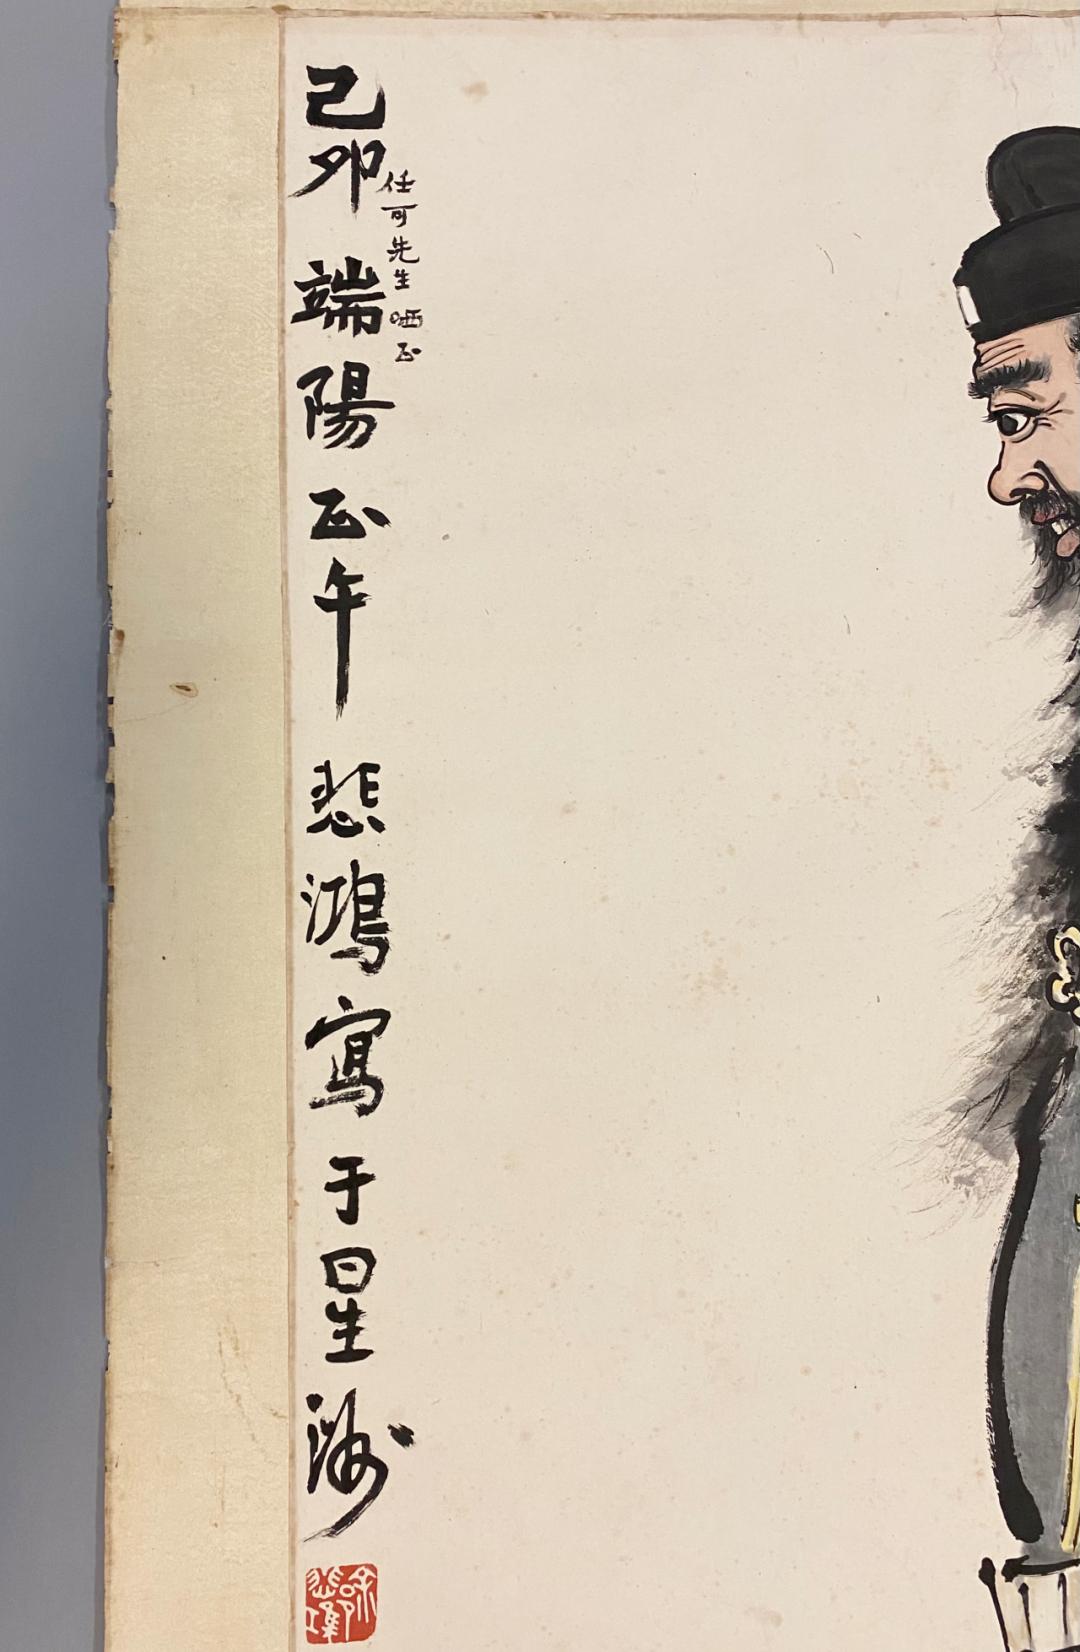 任可先生哂正
己卯端陽正午悲鴻寫于星洲